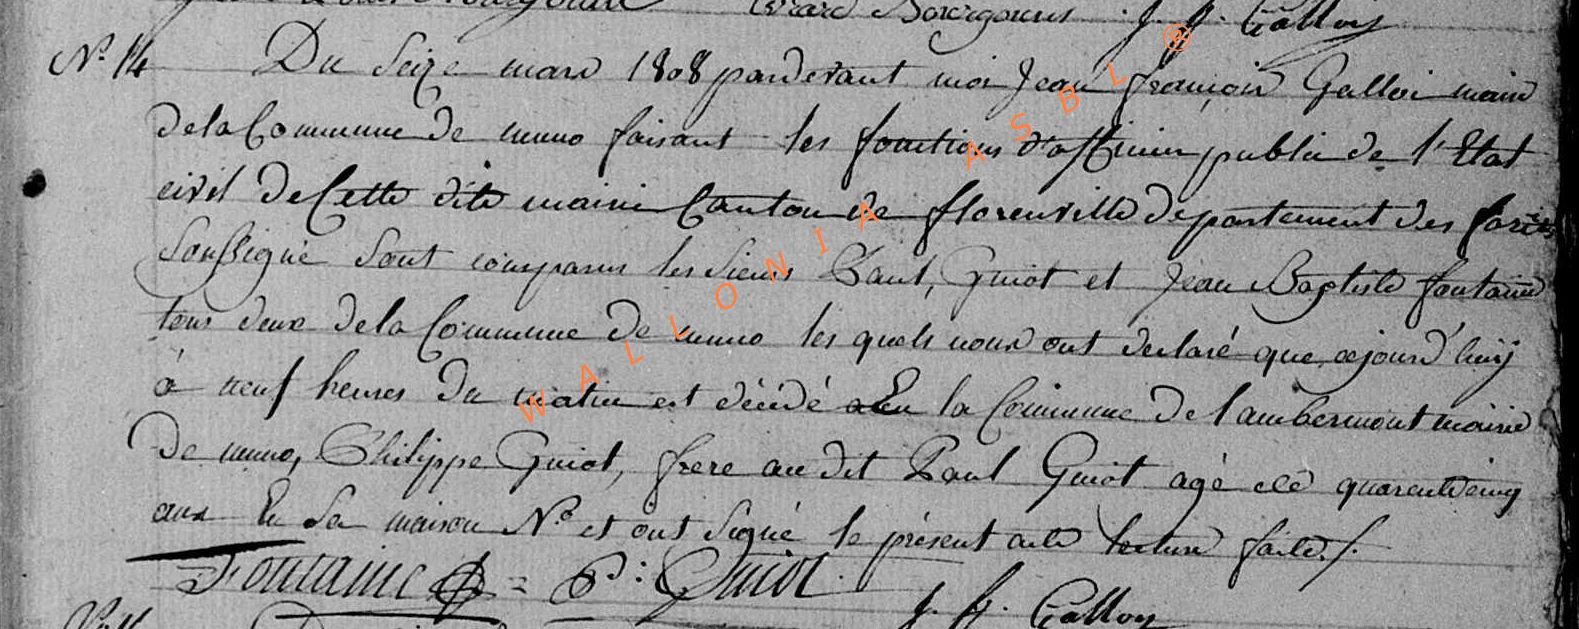 J. J. Galloy
N.º 14 Du Seize mars 1808 pardevant moi Jean françois Galloi maire
de la Commune de muno faisant les fonctions d'officier public de l'Etat
civil de Cette dite mairie Canton de florenville departement des forêts
Soussigné Sont comparus les Sieurs Paul, Guiot et Jean Baptiste fontaine
tous deux de la Commune de muno les quels nous ont declaré que cejourd'huÿ
à neuf heures du matin est décédé En la Commune de lambermont mairie
de muno, Philippe Guiot, frere au dit Paul Guiot agé de quarente cinq
ans En Sa maison N.º et ont Signé le présent acte lecture faite./.
Fontaine = P: Guiot.
J. J. Galloy
WALLONIA ASBL ®